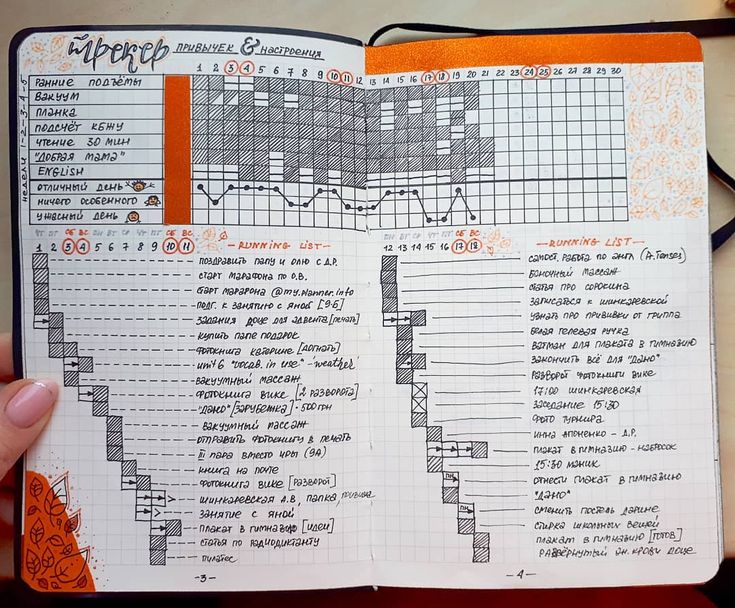 Трекер привычек & настроения
1 2 3 4 5 6 7 8 9 10 11 12 13 14 15 16 17 18 19 20 21 22 23 24 25 26 27 28 29 30
недели 1-2-3-4-5
Ранние подъёмы
Вакуум
Планка
Подсчёт КБЖУ
Чтение 30 мин
"Добрая мама"
English
Отличный день
Ничего особенного
Ужасный день
чт пт сб вс пн вт ср чт пт сб вс
1 2 3 4 5 6 7 8 9 10 11
- Running list -
поздравить папу и Олю с Д.Р.
старт марафона по О.В.
старт марафона @my.planner.info
подг. к занятию с Яной [9-Б]
задания доце для адвента [печать]
купить папе подарок
фотокнига Катерине [догнать]
unit 6 "vocab. in use" - 'weather'
вакуумный массаж
фотокнига Вике [2 разворота]
"Дано" [зарубежка] - 500 грн
вакуумный массаж
отправить фотокнигу в печать
III пара вместо Иры (9А)
книга на почте
фотокнига Вике [разворот]
Шинкаревская А.В, папка,
занятие с Яной
плакат в гимназию [идеи]
статья по радиодиктанту
пилатес
-3-
пн вт ср чт пт сб вс
12 13 14 15 16 17 18
- Running list -
самост. работа по англ (Pr. Tenses)
баночный массаж
статья про Сорокина
записаться к Шинкаревской
узнать про прививки от гриппа
белая гелевая ручка
ватман для плаката в гимназию
закончить всё для "Дано"
разворот фотокниги Вике
17:00 Шинкаревская
заседание 15:30
фото турнира
Инна Апоненко - Д.Р.
плакат в гимназию - набросок
15:30 маник
отнести плакат в гимназию
"Дано"
сменить постель Дарине
стирка школьных вещей
плакат в гимназию [готов]
развёрнутый ан. крови доце
-4-